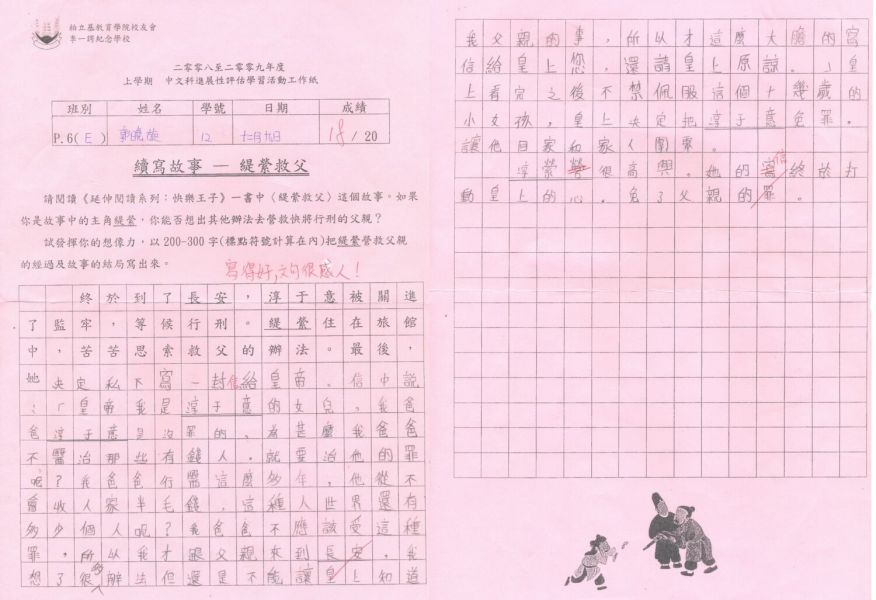 柏立基教育學院校友會
李一諤紀念學校
二零零八至二零零九年度
上學期 中文科進展性評估學習活動工作紙
班別 姓名 學號 日期 成績
P.6( E ) 12 十二月十九日 18 / 20
續寫故事 — 緹縈救父
請閱讀《延伸閱讀系列：快樂王子》一書中〈緹縈救父〉這個故事。如果
你是故事中的主角緹縈，你能否想出其他辦法去營救快將行刑的父親？
試發揮你的想像力，以 200-300 字(標點符號計算在內)把緹縈營救父親
的經過及故事的結局寫出來。
寫得好，文句很感人！
終於到了長安，淳于意被關進
了監牢，等候行刑。緹縈住在旅館
中，苦苦思索救父的辦法。最後，
她決定私下寫一封信給皇帝。信中說
：「皇帝我是淳于意的女兒，我爸
爸淳于意是沒罪的，為甚麼我爸爸
不醫治那些有錢人。就要治他的罪
呢？我爸爸行醫這麼多年，他從不
會收人家半毛錢，這種人世界還有
多少個人呢？我爸爸不應該受這種
罪，所以我才跟父親來到長安，我
想了很多辦法但還是不能讓皇上知道
我父親的事，所以才這麼大膽的寫
信給皇上您，還請皇上原諒。」皇
上看完之後不禁佩服這個十幾歲的
小女孩，皇上決定把淳于意免罪。
讓他回家和家人團聚。
淳縈縈很高興。她的寫信終於打
動皇上的心，免了父親的罪。